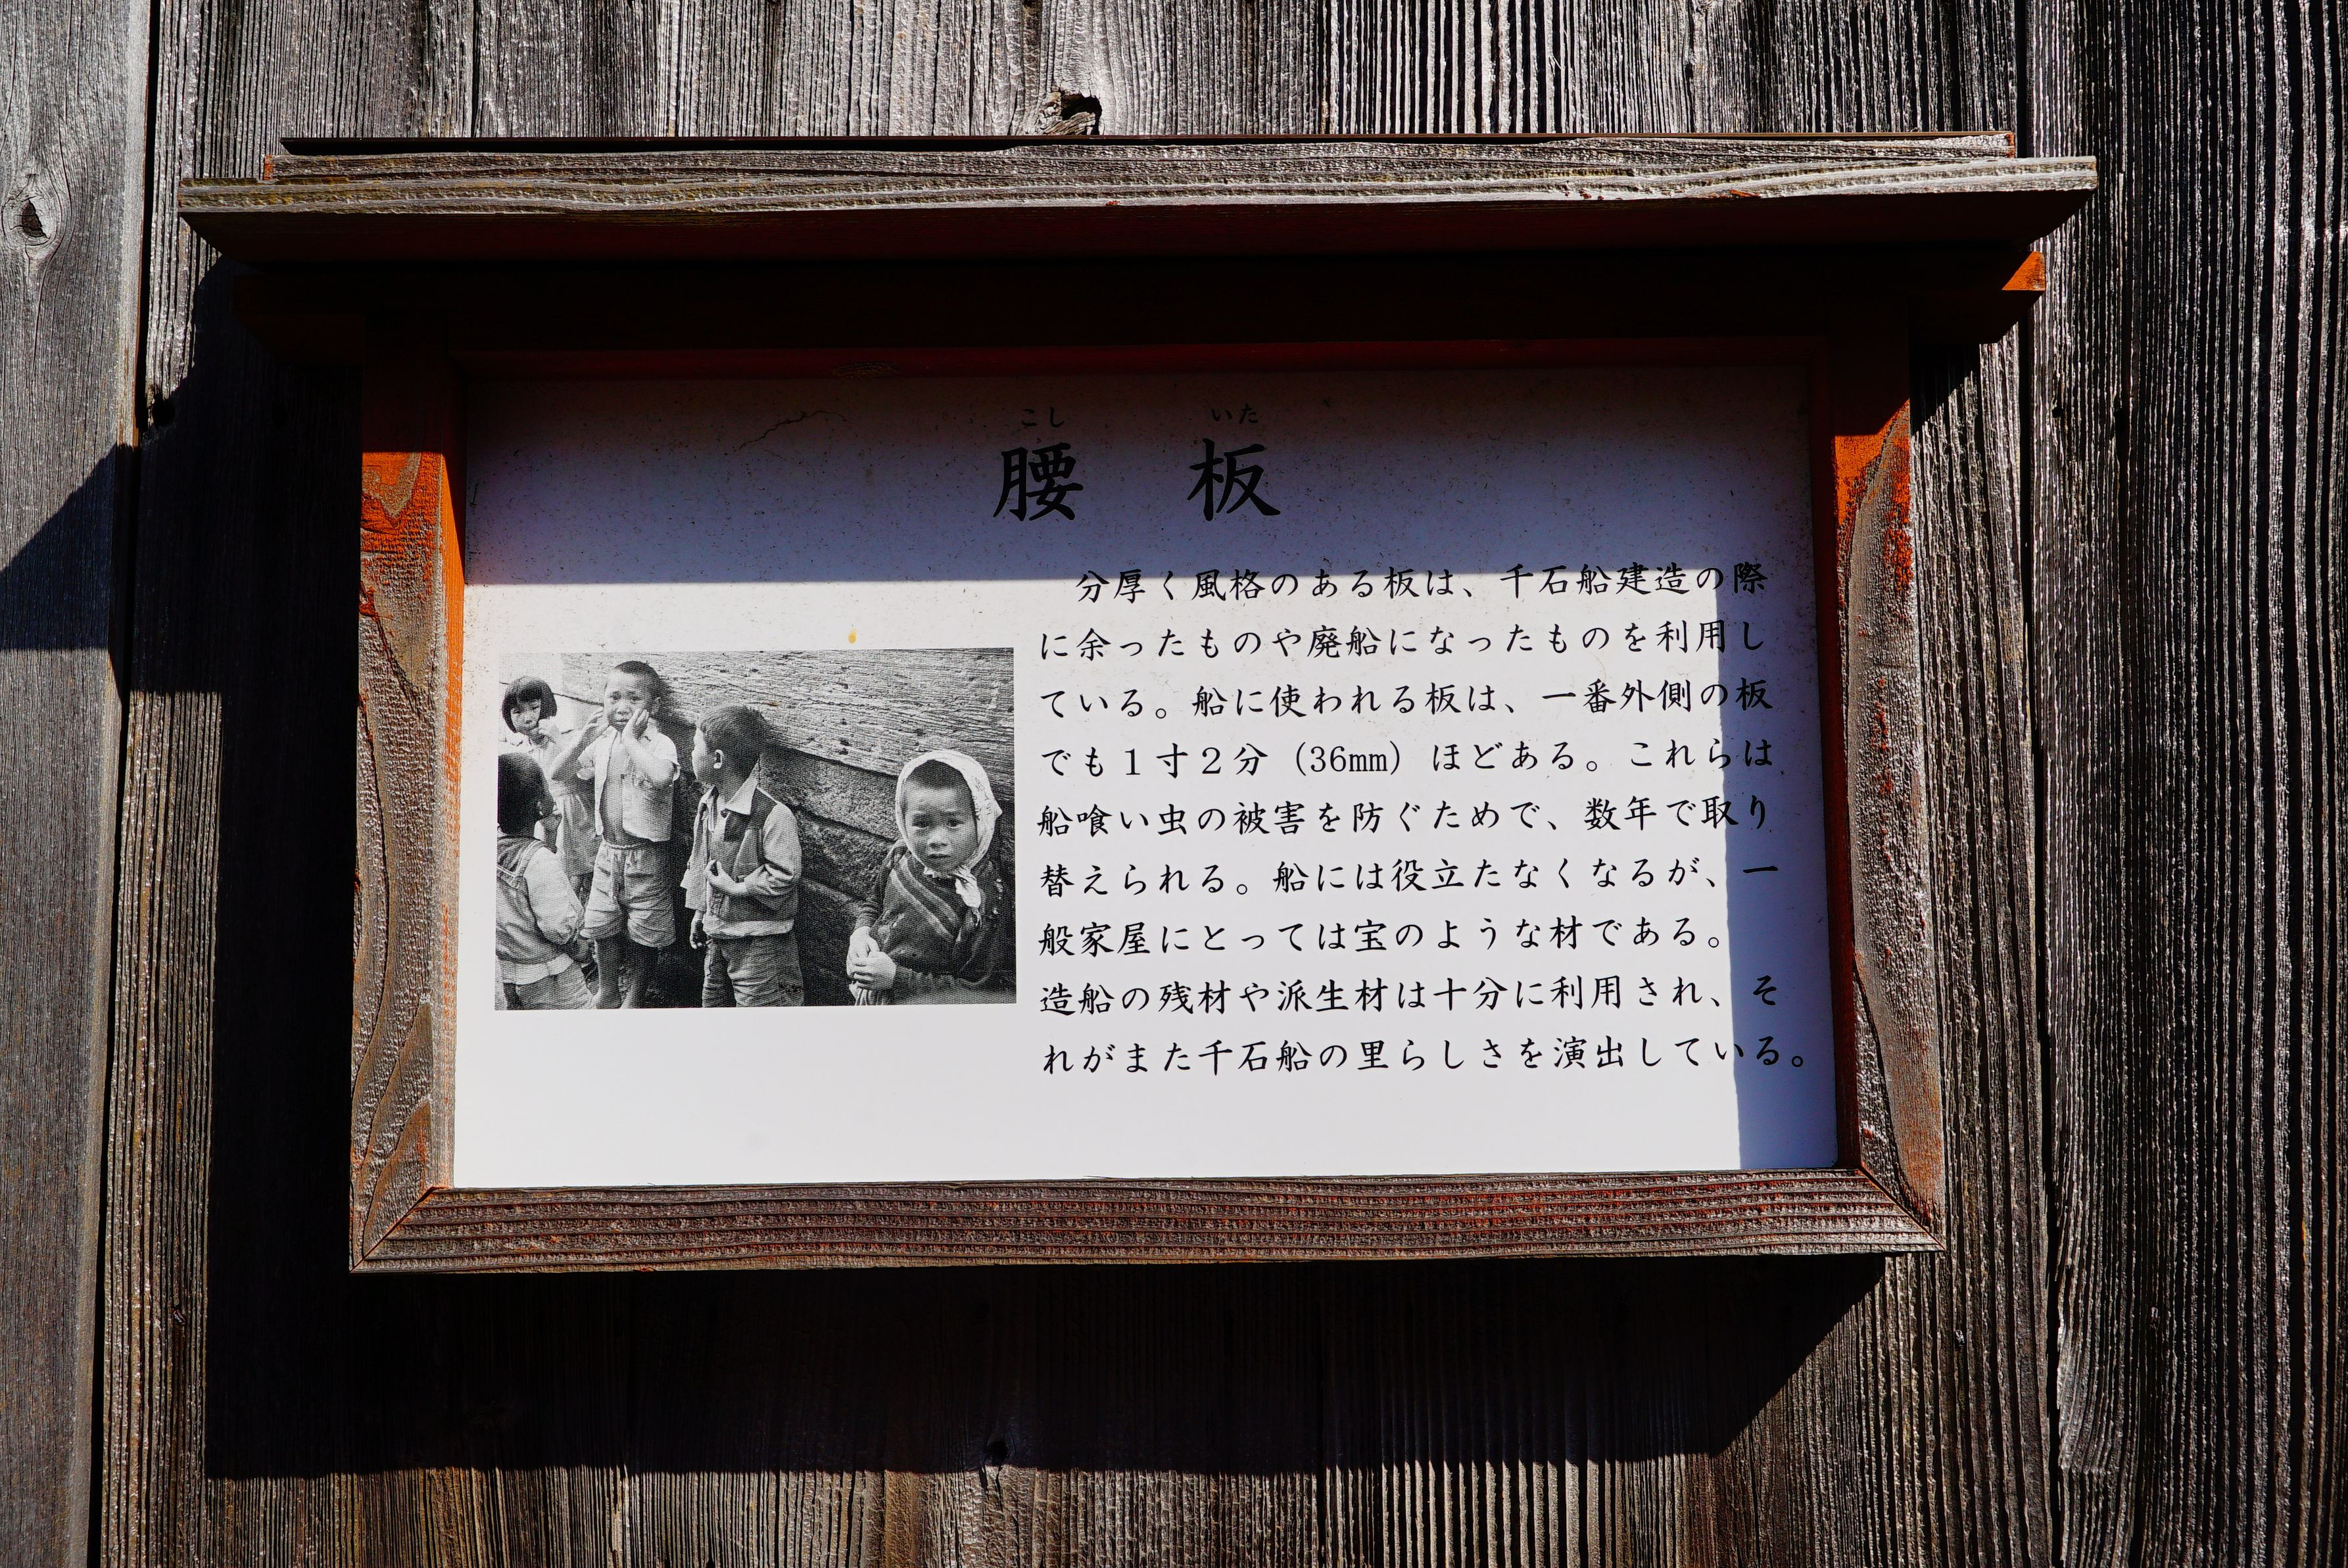 こし いた
腰 板
分厚く風格のある板は、千石船建造の際
に余ったものや廃船になったものを利用し
ている。船に使われる板は、一番外側の板
でも１寸２分（36mm）ほどある。これらは
船喰い虫の被害を防ぐためで、数年で取り
替えられる。船には役立たなくなるが、一
般家屋にとっては宝のような材である。
造船の残材や派生材は十分に利用され、そ
れがまた千石船の里らしさを演出している。